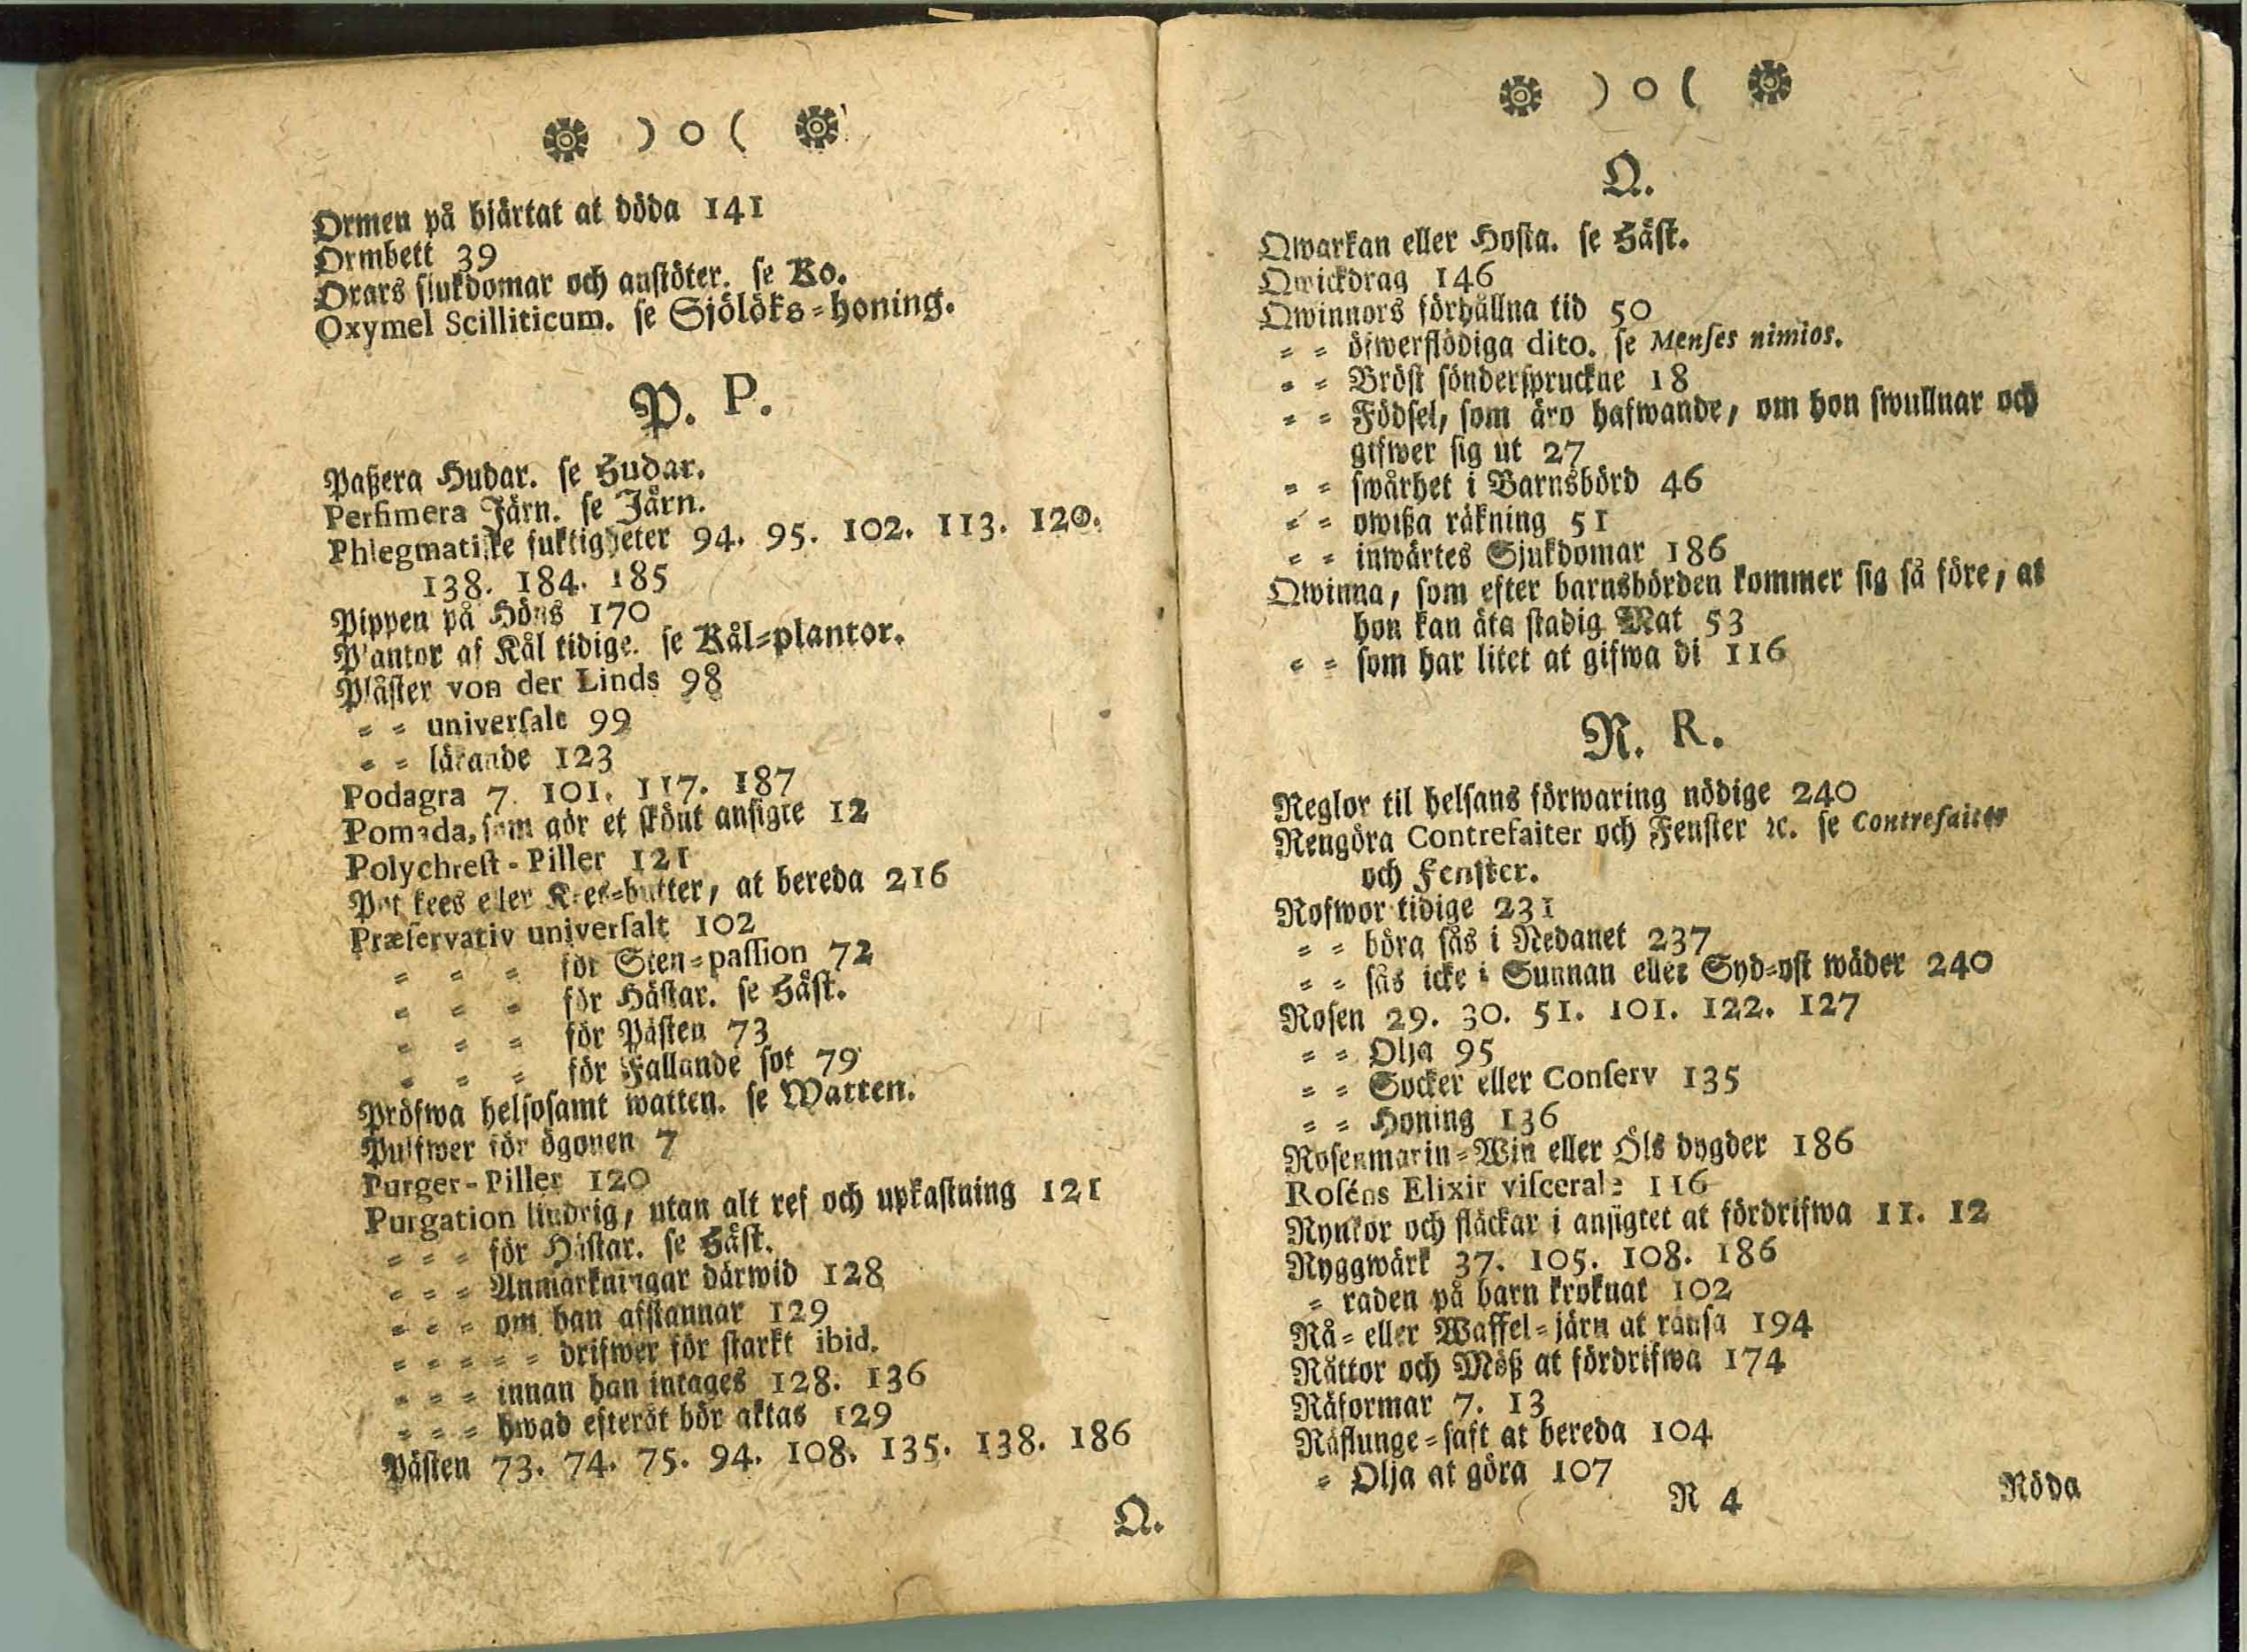 ) o (
Ormen på hjärtat at döda 141
Ormbett 39
Oxars sjukdomar och anstöter. se Ko.
Oxymel Scilliticum. se Sjölöks-honing.
P. P.
Paßera Hudar. se Hudar.
Perfimera Järn. se Järn.
Phlegmatiske fuktigheter 94. 95. 102. 113. 120.
138. 184. 185
Pippen på Höns 170
Plantor af Kål tidige. se Kål-plantor.
Plåster von der Linds 98
- - universale 99
- - läkande 123
Podagra 7. 101. 117. 187
Pomada, som gör et skönt ansigte 12
Polychrest-Piller 121
Pot kees eller Kees-butter, at bereda 216
Præservativ universalt 102
- - - för Sten-passion 72
- - - för Hästar. se Häst.
- - - för Pästen 73
- - - för Fallande sot 79
Pröfwa helsosamt watten. se Watten.
Pulfwer för ögonen 7
Purger-Piller 120
Purgation lindrig, utan alt ref och upkastning 121
- - - för Hästar. se Häst.
- - - Anmärkningar därwid 128
- - - om han afstannar 129
- - - - - drifwer för starkt ibid.
- - - innan han intages 128. 136
- - - hwad efteråt bör aktas 129
Pästen 73. 74. 75. 94. 108. 135. 138. 186
Q.
) o (
Q.
Qwarkan eller Hosta. se Häst.
Qwickdrag 146
Qwinnors förhållna tid 50
- - öfwerflödiga dito. se Menses nimios.
- - Bröst sönderspruckne 18
- - Födsel, som äro hafwande, om hon swullnar och
gifwer sig ut 27
- - swårhet i Barnsbörd 46
- - owißa räkning 51
- - inwärtes Sjukdomar 186
Qwinna, som efter barnsbörden kommer sig så före, at
hon kan äta stadig Mat 53
- - som har litet at gifwa di 116
R. R.
Reglor til helsans förwaring nödige 240
Rengöra Contrefaiter och Fenster ꝛc. se Contrefaiter
och Fenster.
Rofwor tidige 231
- - böra sås i Nedanet 237
- - sås icke i Sunnan eller Syd-ost wäder 240
Rosen 29. 30. 51. 101. 122. 127
- - Olja 95
- - Socker eller Conserv 135
- - Honing 136
Rosenmarin-Win eller Öls dygder 186
Roséns Elixir viscerale 116
Rynkor och fläckar i ansigtet at fördrifwa 11. 12
Ryggwärk 37. 105. 108. 186
- raden på barn kroknat 102
Rå- eller Waffel-järn at ränsa 194
Råttor och Möß at fördrifwa 174
Räformar 7. 13
Räflunge-saft at bereda 104
- Olja at göra 107
R 4
Röda